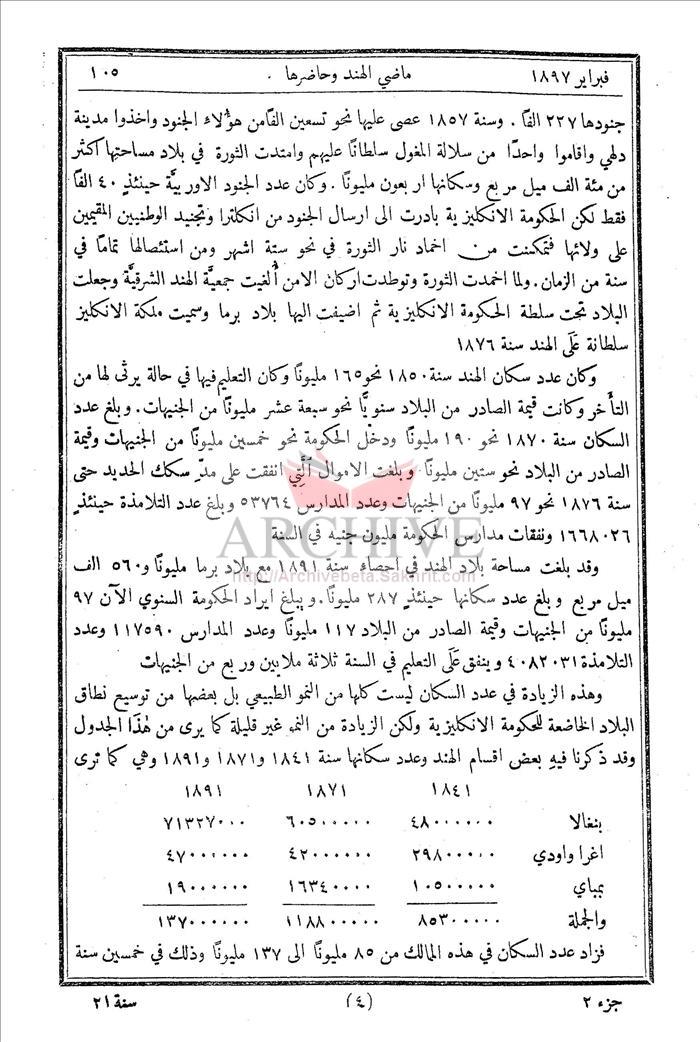 فبراير ١٨٩٧ ماضي الهند وحاضرها . ١٠٥
جنودها ٢٢٧ الفًا . وسنة ١٨٥٧ عصى عليها نحو تسعين الفًا من هؤلاء الجنود واخذوا مدينة
دلهي واقاموا واحدًا من سلالة المغول سلطانًا عليهم وامتدت الثورة في بلاد مساحتها اكثر
من مئة الف ميل مربع وسكانها اربعون مليونًا . وكان عدد الجنود الاوربيَّة حينئذٍ ٤٠ الفًا
فقط لكن الحكومة الانكليزية بادرت الى ارسال الجنود من انكلترا وتجنيد الوطنيين المقيمين
على ولائها فتمكنت من اخماد نار الثورة في نحو ستة اشهر ومن استئصالها تمامًا في
سنة من الزمان . ولما اخمدت الثورة وتوطدت اركان الامن أُلغيت جمعيَّة الهند الشرقيَّة وجعلت
البلاد تحت سلطة الحكومة الانكليزية ثم اضيفت اليها بلاد برما وسميت ملكة الانكليز
سلطانة عَلَى الهند سنة ١٨٧٦
وكان عدد سكان الهند سنة ١٨٥٠ نحو ١٦٥ مليونًا وكان التعليم فيها في حالة يرثى لها من
التأخر وكانت قيمة الصادر من البلاد سنويًّا نحو سبعة عشر مليونًا من الجنيهات . وبلغ عدد
السكان سنة ١٨٧٠ نحو ١٩٠ مليونًا ودخل الحكومة نحو خمسين مليونًا من الجنيهات وقيمة
الصادر من البلاد نحو ستين مليونًا وبلغت الاموال الَّتِي انفقت على مدّ سكك الحديد حتى
سنة ١٨٧٦ نحو ٩٧ مليونًا من الجنيهات وعدد المدارس ٥٣٧٦٤ وبلغ عدد التلامذة حينئذٍ
١٦٦٨٠٢٦ ونفقات مدارس الحكومة مليون جنيه في السنة
وقد بلغت مساحة بلاد الهند في احصاء سنة ١٨٩١ مع بلاد برما مليونًا و٥٦٠ الف
ميل مربع وبلغ عدد سكانها حينئذٍ ٢٨٧ مليونًا . ويبلغ ايراد الحكومة السنوي الآن ٩٧
مليونًا من الجنيهات وقيمة الصادر من البلاد ١١٧ مليونًا وعدد المدارس ١١٧٥٩٠ وعدد
التلامذة ٤٠٨٢٠٣١ وينفق عَلَى التعليم في السنة ثلاثة ملايين وربع من الجنيهات
وهذه الزيادة في عدد السكان ليست كلها من النمو الطبيعي بل بعضها من توسيع نطاق
البلاد الخاضعة للحكومة الانكليزية ولكن الزيادة من النمو غير قليلة كما يرى من هٰذَا الجدول
وقد ذكرنا فيه بعض اقسام الهند وعدد سكانها سنة ١٨٤١ و١٨٧١ و١٨٩١ وهي كما ترى
١٨٤١ ١٨٧١ ١٨٩١
بنغالا ٤٨٠٠٠٠٠٠ ٦٠٥٠٠٠٠٠ ٧١٣٢٧٠٠٠
اغرا واودي ٢٩٨٠٠٠٠٠ ٤٢٠٠٠٠٠٠ ٤٧٠٠٠٠٠٠
بمباي ١٠٥٠٠٠٠٠ ١٦٣٤٠٠٠٠ ١٩٠٠٠٠٠٠
والجملة ٨٥٣٠٠٠٠٠ ١١٨٨٠٠٠٠٠ ١٣٧٠٠٠٠٠٠
فزاد عدد السكان في هذه الممالك من ٨٥ مليونًا الى ١٣٧ مليونًا وذلك في خمسين سنة
جزء ٢ (٤) سنة ٢١
ARCHIVE
http://Archivebeta.Sakhrit.com